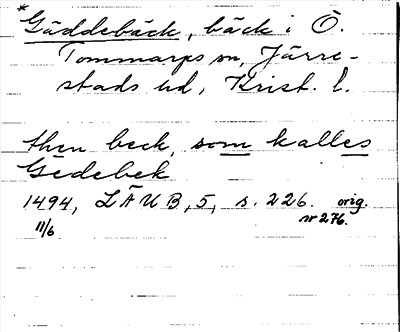 *Gäddebäck, bäck i Ö.
Tommarps sn, Järre-
stads hd, Krist. l.
then beck, som kalles
Gedebek
1494, LÄUB, 5, s. 226. orig.
11/6 nr 276.